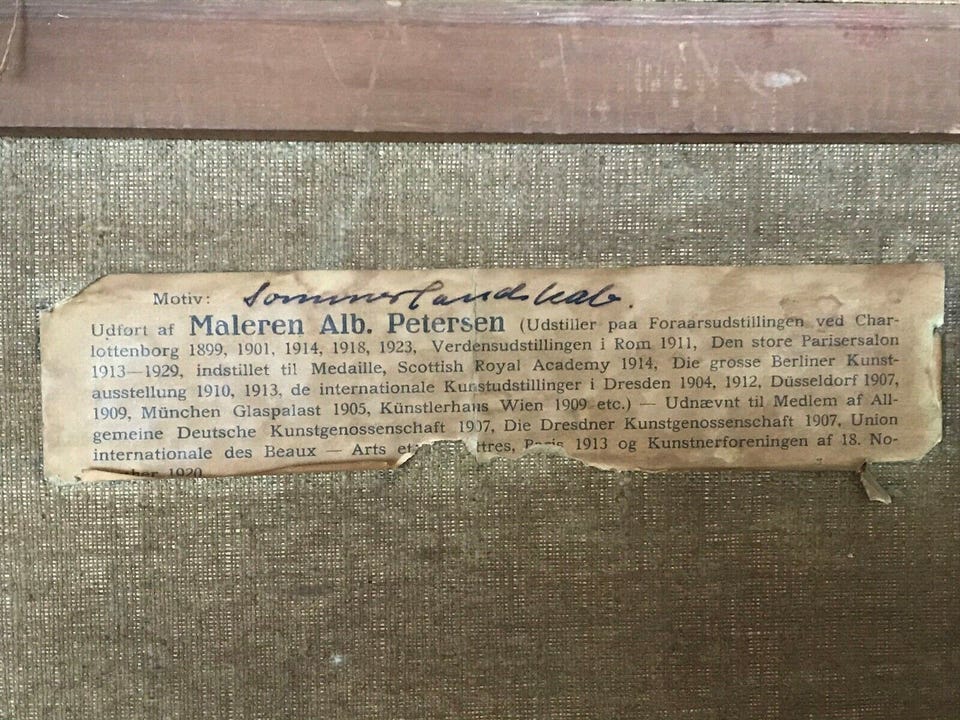 Motiv: Sommerlandskab.
Udført af Maleren Alb. Petersen (Udstiller paa Foraarsudstillingen ved Char-
lottenborg 1899, 1901, 1914, 1918, 1923, Verdensudstillingen i Rom 1911, Den store Parisersalon
1913—1929, indstillet til Medaille, Scottish Royal Academy 1914, Die grosse Berliner Kunst-
ausstellung 1910, 1913, de internationale Kunstudstillinger i Dresden 1904, 1912, Düsseldorf 1907,
1909, München Glaspalast 1905, Künstlerhaus Wien 1909 etc.) — Udnævnt til Medlem af All-
gemeine Deutsche Kunstgenossenschaft 1907, Die Dresdner Kunstgenossenschaft 1907, Union
internationale des Beaux — Arts et ttres, Paris 1913 og Kunstnerforeningen af 18. No-
ber 1920